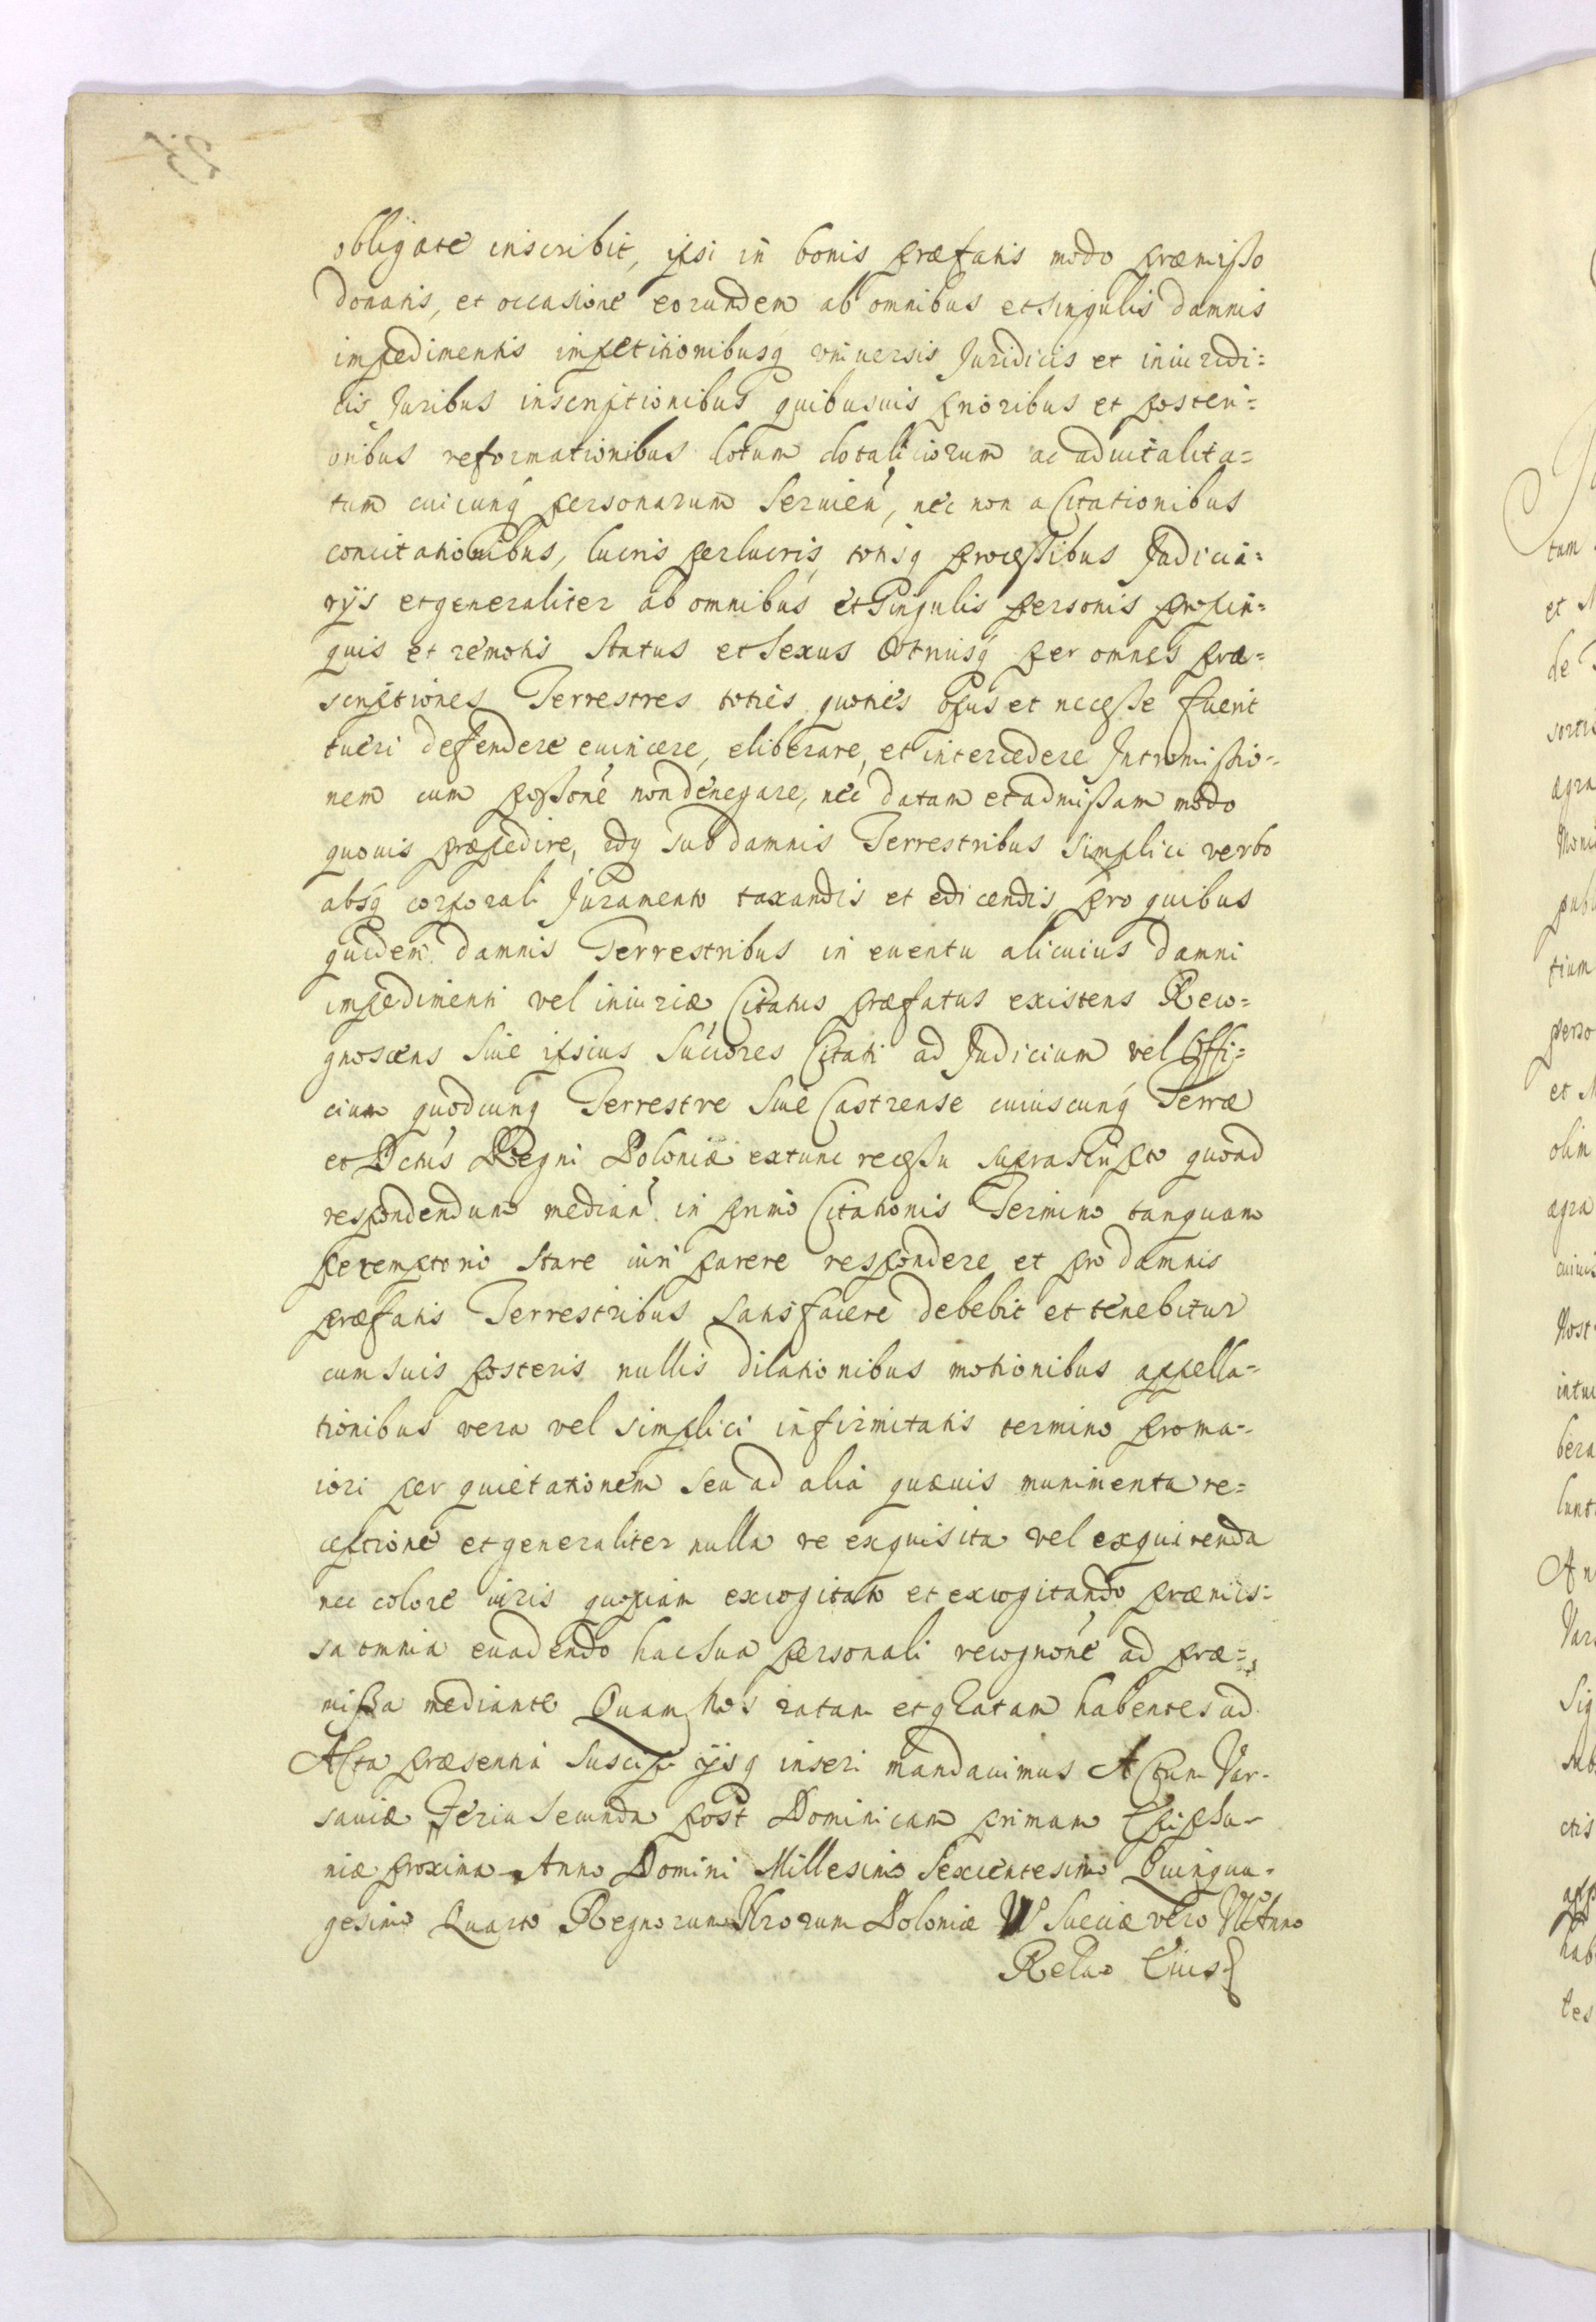 obligate inscribit, ipsi in bonis præfatis modo præmisso
donatis, et occasione eorundem ab omnibus et singulis damnis
impedimentis impetitionibusq vniuersis Juridicis et iniuridi=
cis Juribus inscriptionibus quibusuis prioribus et posteri=
oribus reformationibus dotum dotalitiorum ac aduitalita=
tum cuicunq personarum seruien, nec non a Citationibus
concitationibus, lucris perlucris, totisq processibus Judicia=
rijs et generaliter ab omnibus et singulis personis propin=
quis et remotis status et sexus vtriusq per omnes præ=
scriptiones Terrestres toties quoties opus et necesse fuerit
tueri defendere euincere, eliberare, et intercedere Intromissio=
nem cum possone non denegare, nec datam et admissam modo
quouis præpedire, idq sub damnis Terrestribus simplici verbo
absq corporali Juramento taxandis et edicendis, pro quibus
quidem damnis Terrestribus in euentu alicuius damni
impedimenti vel iniuriæ, Citatus præfatus existens Reco=
gnoscens siue ipsius succores Citati ad Judicium vel Offi=
cium quodcunq Terrestre siue Castrense cuiuscunq Terræ
et Dctus Regni Poloniæ extunc recessu suprascripto quoad
respondendum median in primo Citationis Termino tanquam
peremptorio stare iuri parere respondere et pro damnis
præfatis Terrestribus satisfacere debebit et tenebitur
cum suis posteris nullis dilationibus motionibus appella=
tionibus vera vel simplici infirmitatis termino pro ma=
iori per quietationem seu ad alia quæuis munimenta re=
ceptione et generaliter nulla re exquisita vel exquirenda
nec colore iuris quopiam excogitato et excogitando præmis=
sa omnia euadendo hac sua personali recognone ad præ=
missa mediante Quam Nos ratam et gratam habentes ad
Acta præsentia suscipi ijsq inseri mandauimus Actum Var=
sauiæ Feria Secunda post Dominicam primam Epipha=
niæ proxima Anno Domini Millesimo Sexcentesimo Quinqua=
gesimo Quarto Regnorum Nrorum Poloniæ VI Sueciæ vero VII Anno
Relao Eius